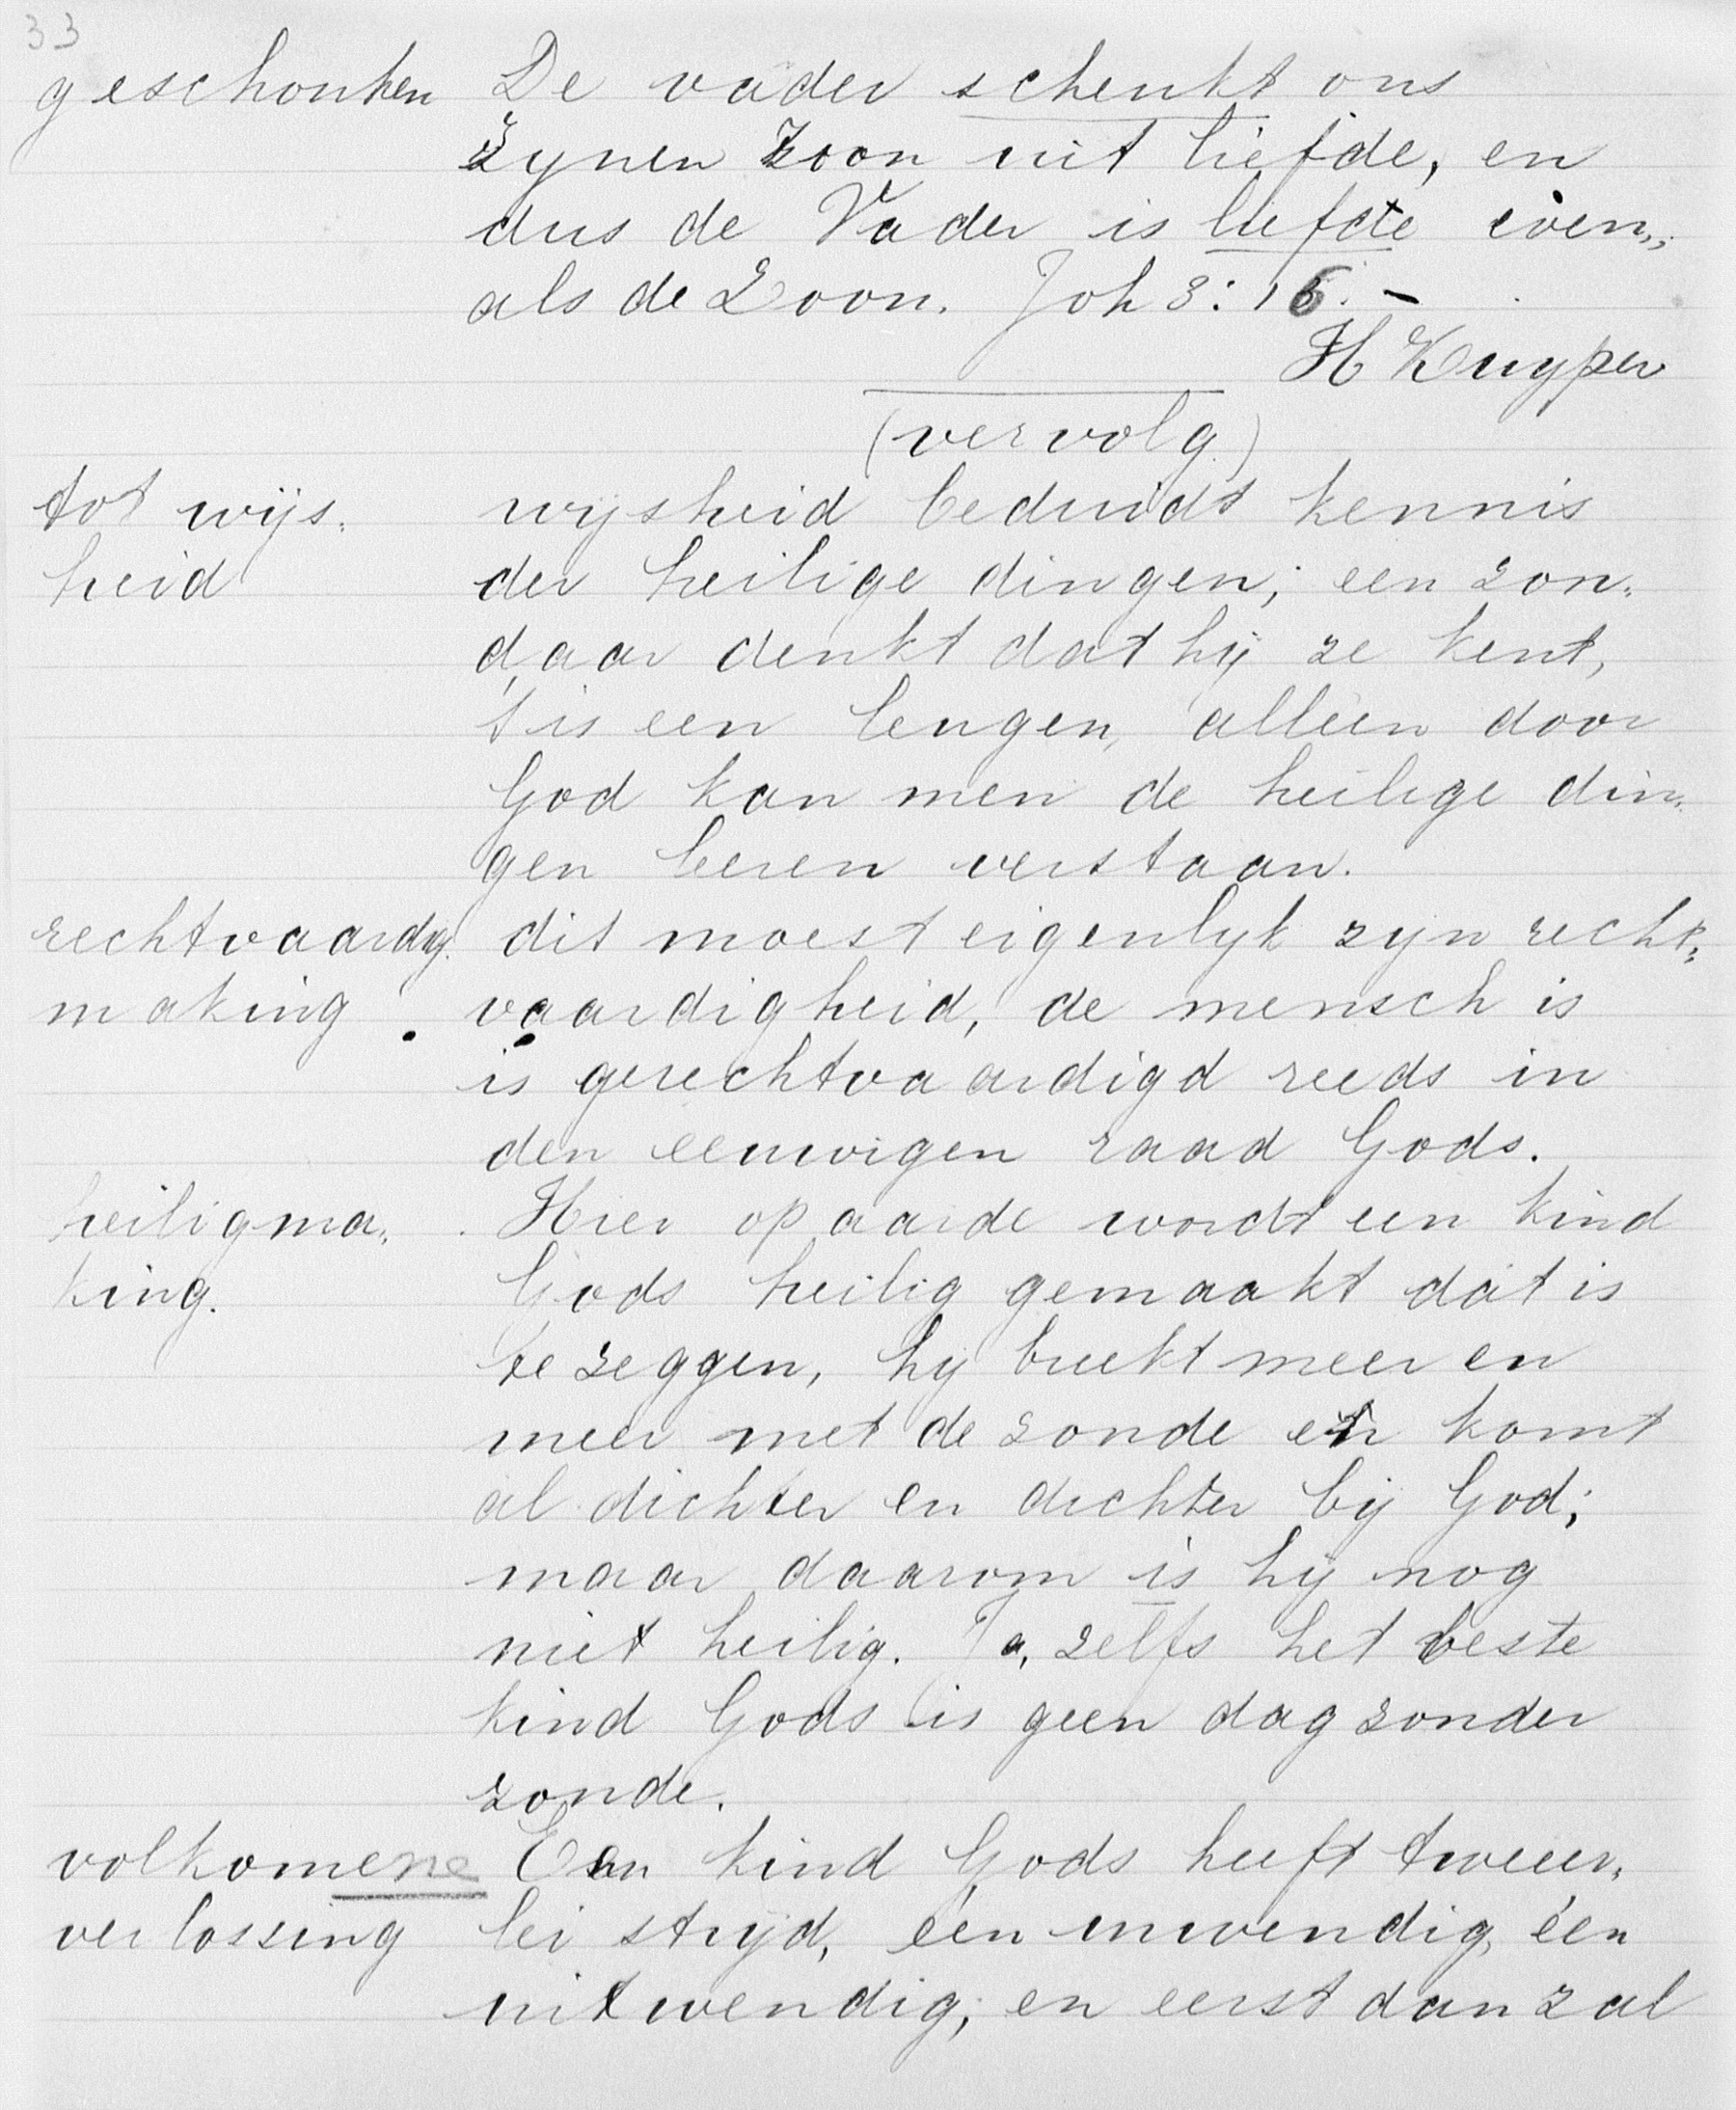 33
geschonken De vader schenkt ons
zynen zoon uit liefde, en
dus de Vader is liefde even„
als de Zoon. Joh 3:16. –
H Kuyper
(vervolg.)
tot wijs„ wysheid beduidt kennis
heid der heilige dingen; een zon„
daar denkt dat hij ze kent,
't is een leugen, alleen door
God kan men de heilige din„
gen leeren verstaan.
rechtvaardig. dit moest eigenlyk zyn recht„
making. vaardigheid, de mensch is
is gerechtvaardigd reeds in
den eeuwigen raad Gods.
heiligma„ Hier op aarde wordt een kind
king. Gods heilig gemaakt dat is
te zeggen, hy breekt meer en
meer met de zonde en komt
al dichter en dichter bij God;
maar daarom is hy nog
niet heilig. Ja, zelfs het beste
kind Gods is geen dag zonder
zonde.
volkomene Een kind Gods heeft tweeër„
verlossing lei stryd, één inwendig, één
uitwendig; en eerst dan zal